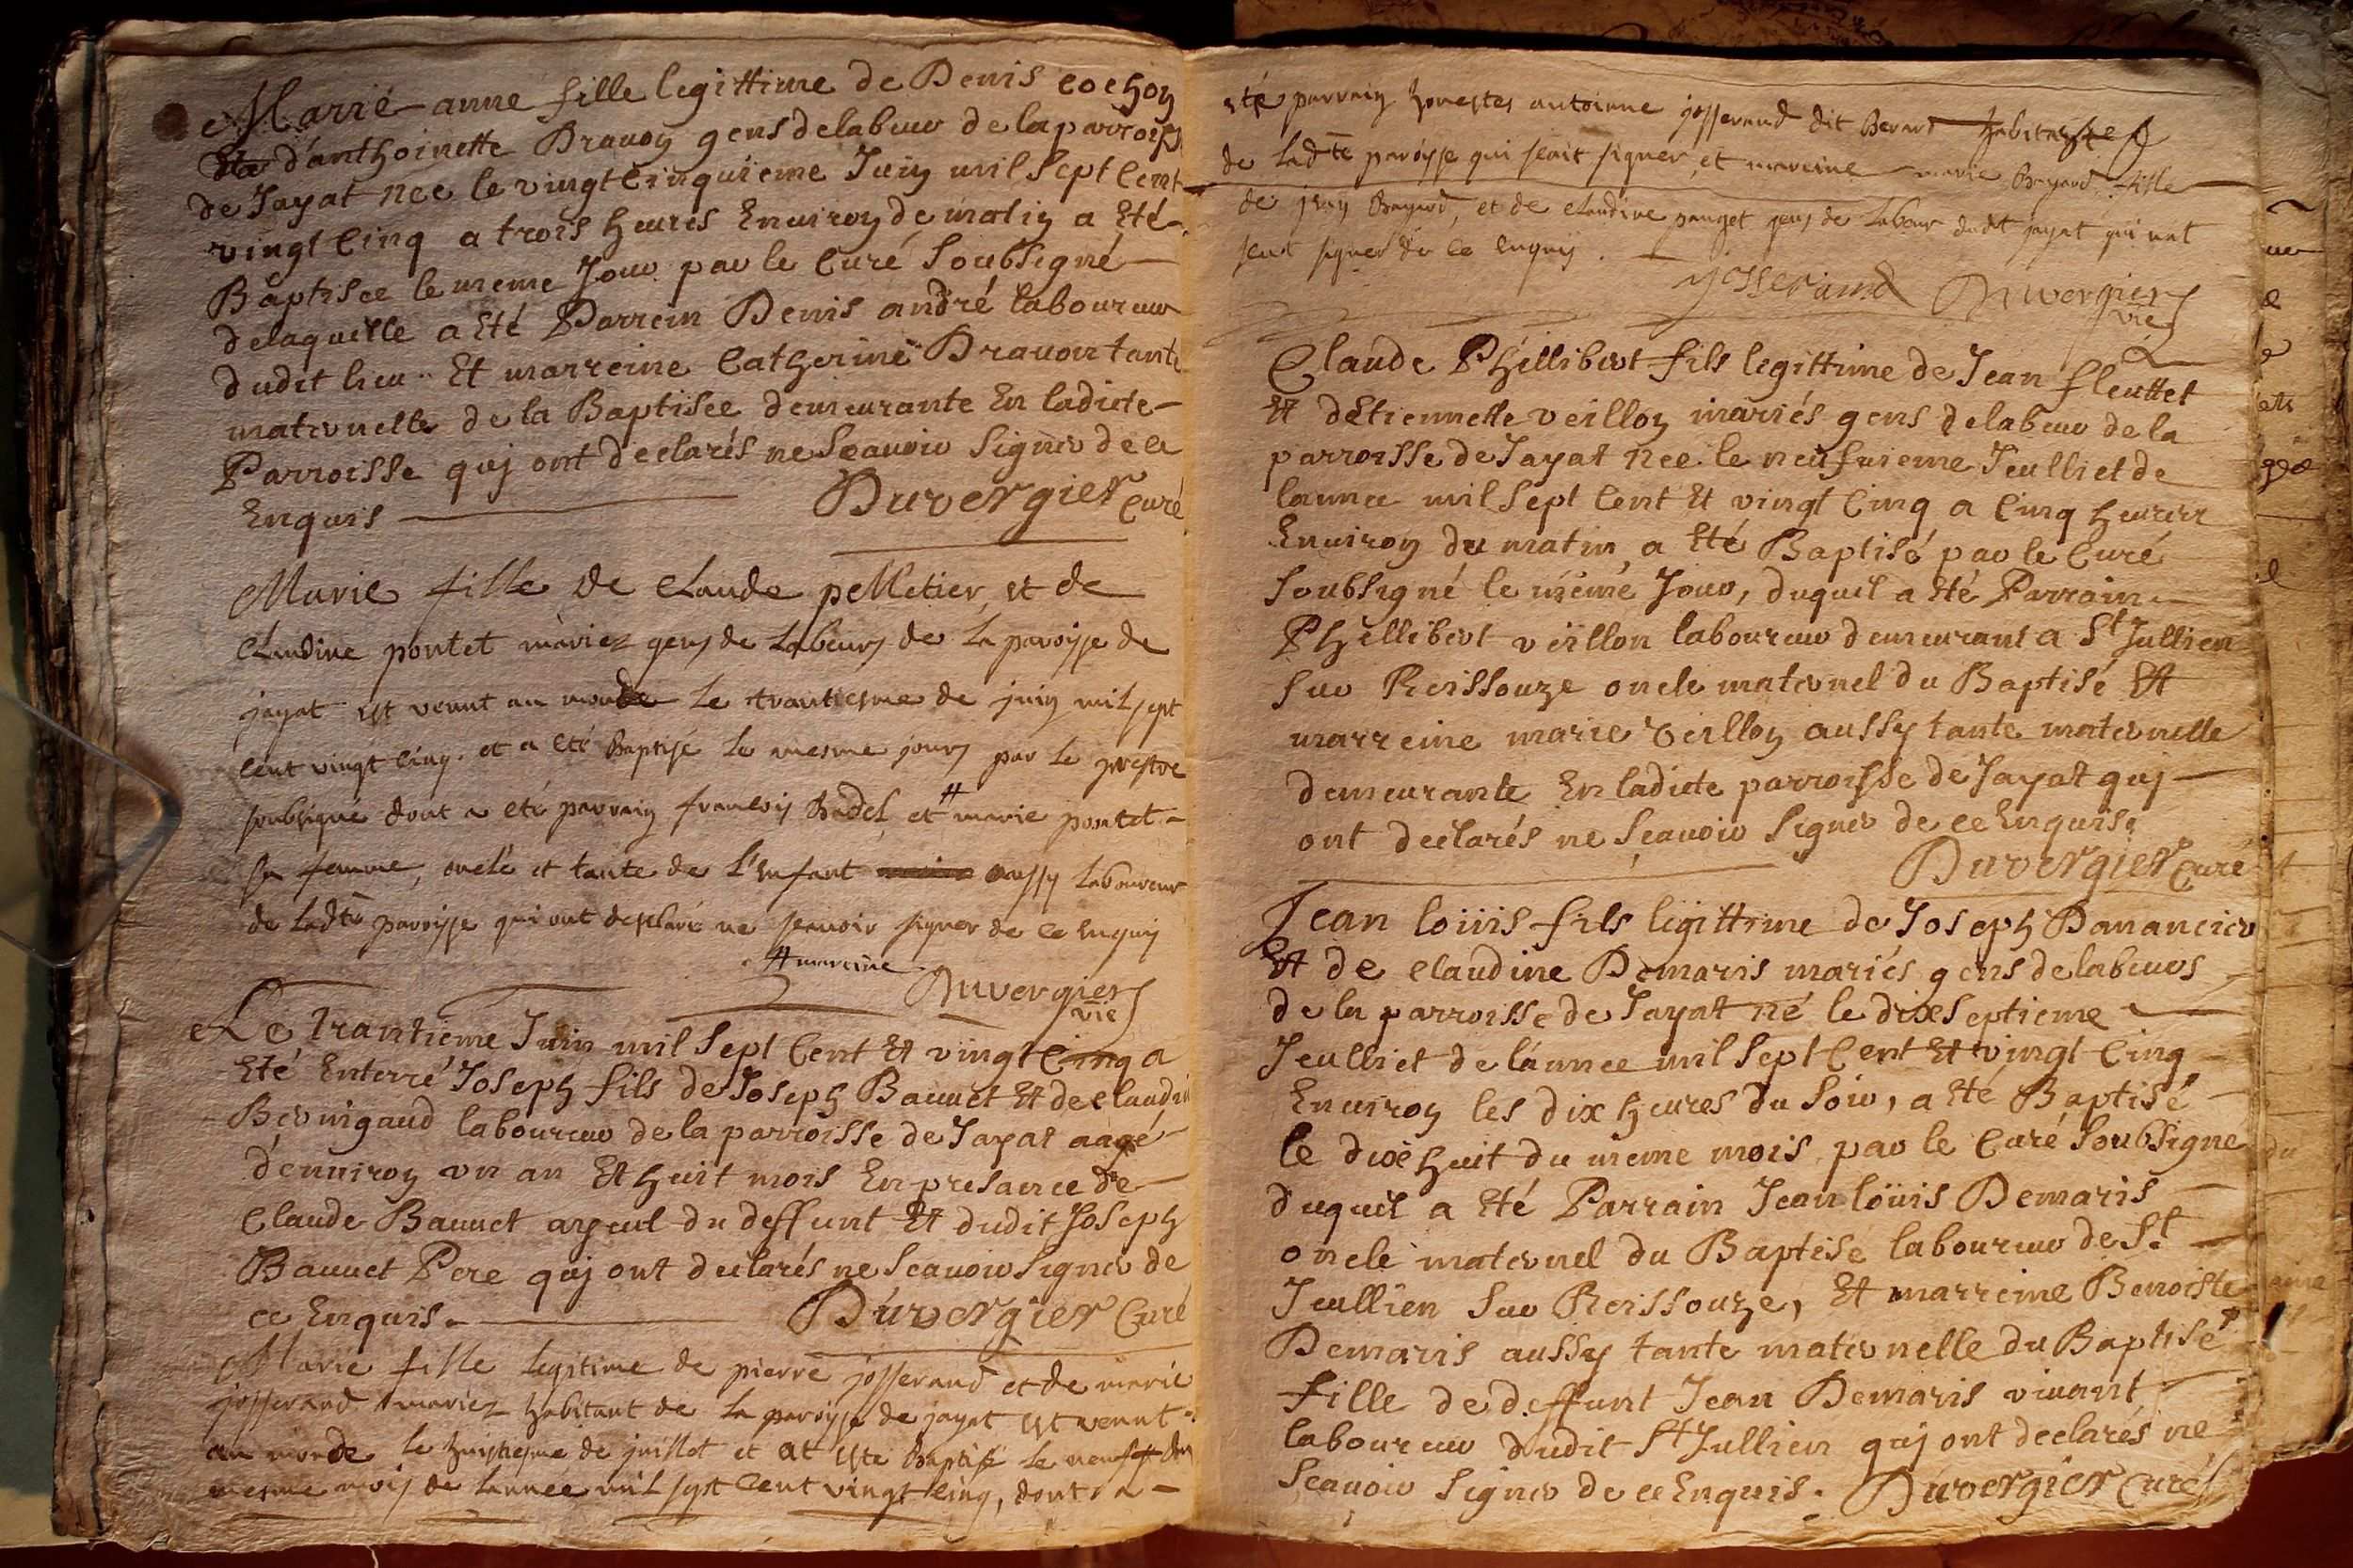 Marie anne fille legittime de Denis cochon
d'anthoinette Dravon gens de labeur de la parroisse
de Jayat née le vingt cinquieme Juin mil Sept Cent
vingt Cinq a trois heures Environ de matin a Eté
Baptisee le meme Jour par le Curé Soubsigné
delaquelle a Eté Parrein Denis andré laboureur
dudit lieu Et marreine Catherine Dravon tante
maternelle de la Baptisée demeurante En ladicte
Parroisse quj ont declarés ne Scavoir Signer de ce
Enquis Duvergier Curé
Marie fille de claude pelletier, et de
claudine pontet mariez gens de Labeurs de La paroisse de
jayat est venut au monde Le trantiesme de juin mil sept
cent vingt cinq. et a eté Baptisé Le mesme jours par Le prestre
soubsigné dont a eté parrain francois Badel et # marie pontet
sa femme, oncle et tante de L'enfant aussy Laboureur
de Ladte paroisse qui ont desclaré ne scavoir signer de ce enquis
# mareine
Duvergier vic
Le Trantieme Juin mil Sept Cent Et vingt Cinq a
Eté Enterré Joseph fils de Joseph Bauuet Et de claudine
Bernigaud laboureur de la parroisse de Jayat aagé
d'enuiron vn an Et huit mois En presance de
Claude Bauuet ayeul du deffunt Et dudit Joseph
Bauuet Pere quj ont declarés ne Scauoir Signer de
ce Enquis. Duvergier Curé
Marie fille legitime de pierre josserand et de marie
josserand mariez habitant de La paroisse de jayat est venut
au monde Le huistiesme de juillet et at esté Baptisé Le neuf du
mesme mois de Lannée mil sept cent vingt cinq, dont a
eté parrain honestes antoinne josserand dit Berard habitant
de Ladte paroisse qui scait signer, et mareine marie Bayard fille
de jean Bayard, et de claudine panget gens de Labeur dudt jayat qui nat
sceut signer de ce enquis.
josserand Duvergier vic
Claude Phillibert fils legittime de Jean fleuttet
Et d'Etiennette veillon mariés gens de labeur de la
parroisse de Jayat née le neufuieme Jeulliet de
lannee mil Sept Cent Et vingt Cinq a Cinq heures
Enuiron du matin, a Eté Baptisé par le Curé
Soubsigné le méme Jour, duquel a Eté Parrain
Phillibert veillon laboureur demeurant a St Jullien
Sur Reissouze oncle maternel du Baptisé Et
marreine marie veillon aussy tante maternelle
demeurante En ladicte parroisse de Jayat quj
ont declarés ne Scauoir Signer de ce Enquis.
Duvergier Curé
Jean loüis fils légittime de Joseph Danancier
Et de claudine Demaris mariés gens de labeurs
de la parroisse de Jayat né le dixseptieme
Jeulliet de l'annee mil Sept Cent Et vingt Cinq
Enuiron les dix heures du Soir, a Eté Baptisé
le dixhuit du meme mois par le Curé Soubsigne
duquel a Eté Parrain Jean loüis Demaris
oncle maternel du Baptisé laboureur de St
Jeullien Sur Reissouze, Et marreine Benoiste
Demaris aussy tante maternelle du Baptisé
fille de deffunt Jean Demaris viuant
laboureur dudit St Jullien quj ont declarés ne
Scauoir Signer de ce Enquis. Duvergier Curé